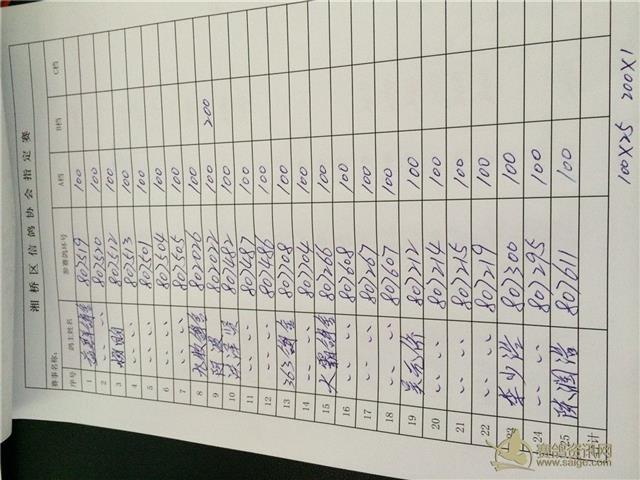 湘桥区信鸽协会指定赛
赛事名称：
序号 鸽主姓名 参赛鸽环号 A档 B档 C档
1 802519 100
2 〃 〃 802520 100
3 802512 100
4 〃 〃 802513 100
5 〃 〃 802501 100
6 〃 〃 802504 100
7 〃 〃 802505 100
8 802026 100
9 802022 100 200
10 807682 100
11 〃 〃 807687 100
12 〃 〃 807686 100
13 363鸽舍 807708 100
14 〃 〃 807704 100
15 807266 100
16 〃 〃 807608 100
17 〃 〃 807267 100
18 〃 〃 807607 100
19 807212 100
20 〃 〃 807214 100
21 〃 〃 807215 100
22 〃 〃 807219 100
23 李少浩 807300 100
24 〃 〃 807295 100
25 陈润浩 807611 100
合计
100X25 200X1
赛鸽资讯网
www.saige.com